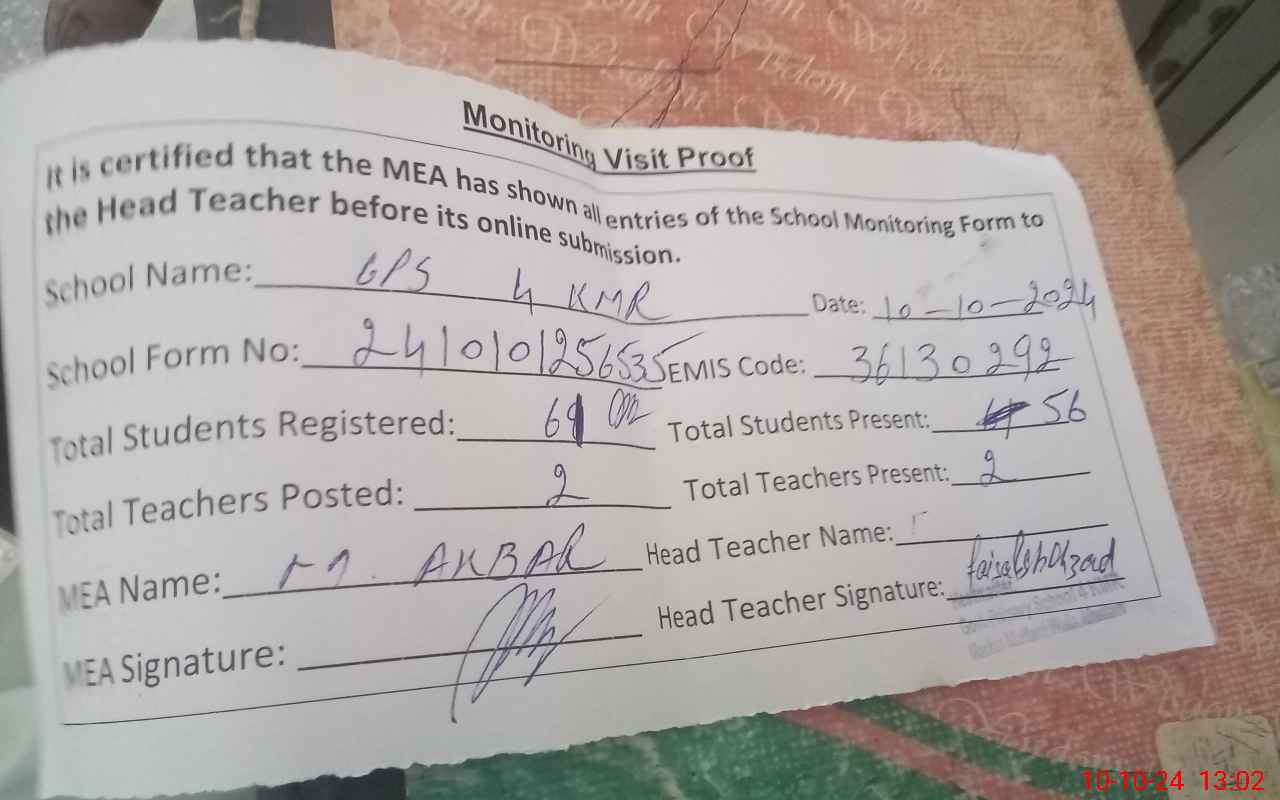 Monitoring Visit Proof
It is certified that the MEA has shown all entries of the School Monitoring Form to
the Head Teacher before its online submission.
School Name: GPS 4 KMR Date: 10-10-2024
School Form No: 2410101256535 EMIS Code: 36130292
Total Students Registered: 61 Total Students Present: 56
Total Teachers Posted: 2 Total Teachers Present: 2
MEA Name: M. AKBAR Head Teacher Name:
MEA Signature: Head Teacher Signature: faisalshahzad
Govt. Primary School 4 KMR
Wisdom
10-10-24 13:02